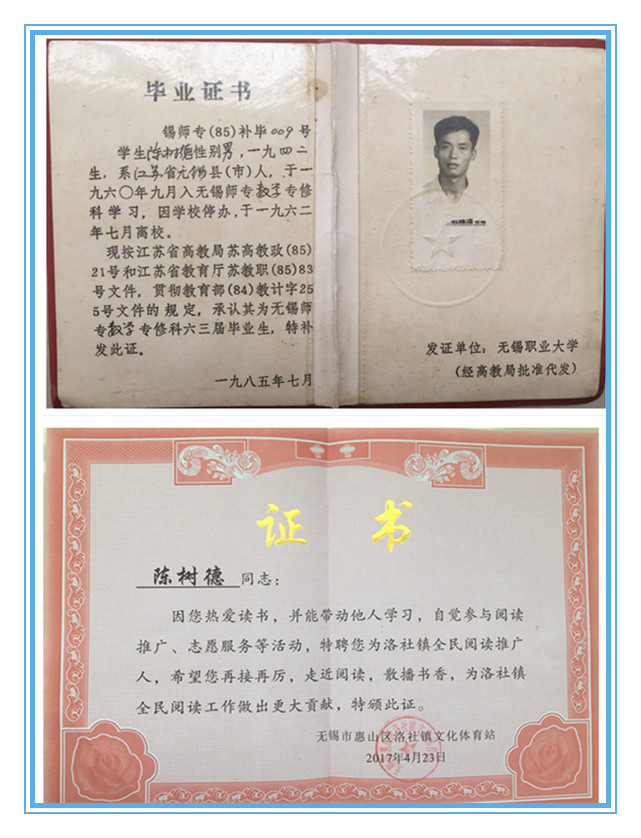 毕业证书
锡师专(85)补毕009号
学生陈树德性别男,一九四二
生,系江苏省无锡县(市)人,于一
九六〇年九月入无锡师专数学专修
科学习,因学校停办,于一九六二
年七月离校。
现按江苏省高教局苏高教政(85)
21号和江苏省教育厅苏教职(85)83
号文件,贯彻教育部(84)教计字25
5号文件的规定,承认其为无锡师
专数学专修科六三届毕业生,特补
发此证。
一九八五年七月
发证单位:无锡职业大学
(经高教局批准代发)
证 书
陈树德 同志:
因您热爱读书,并能带动他人学习,自觉参与阅读
推广、志愿服务等活动,特聘您为洛社镇全民阅读推广
人,希望您再接再厉,走近阅读,散播书香,为洛社镇
全民阅读工作做出更大贡献,特颁此证。
无锡市惠山区洛社镇文化体育站
2017年4月23日